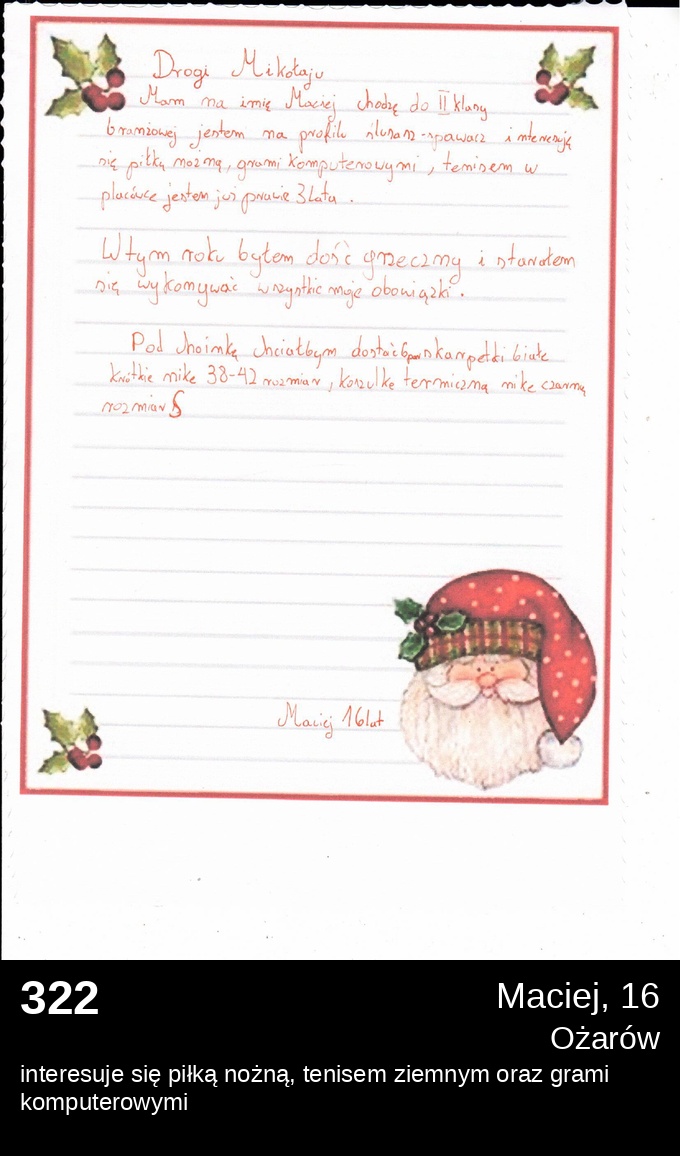 Drogi Mikołaju
Mam na imię Maciej chodzę do II klasy
branżowej jestem na profilu ślusarz-spawacz i interesuję
się piłką nożną, grami komputerowymi, tenisem w
placówce jestem już prawie 3 lata.
W tym roku byłem dość grzeczny i starałem
się wykonywać wszystkie moje obowiązki.
Pod choinkę chciałbym dostać 6par skarpetki białe
krótkie nike 38-42 rozmiar, koszulkę termiczną nike czarną
rozmiar S
Maciej 16lat
322
Maciej, 16
Ożarów
interesuje się piłką nożną, tenisem ziemnym oraz grami
komputerowymi